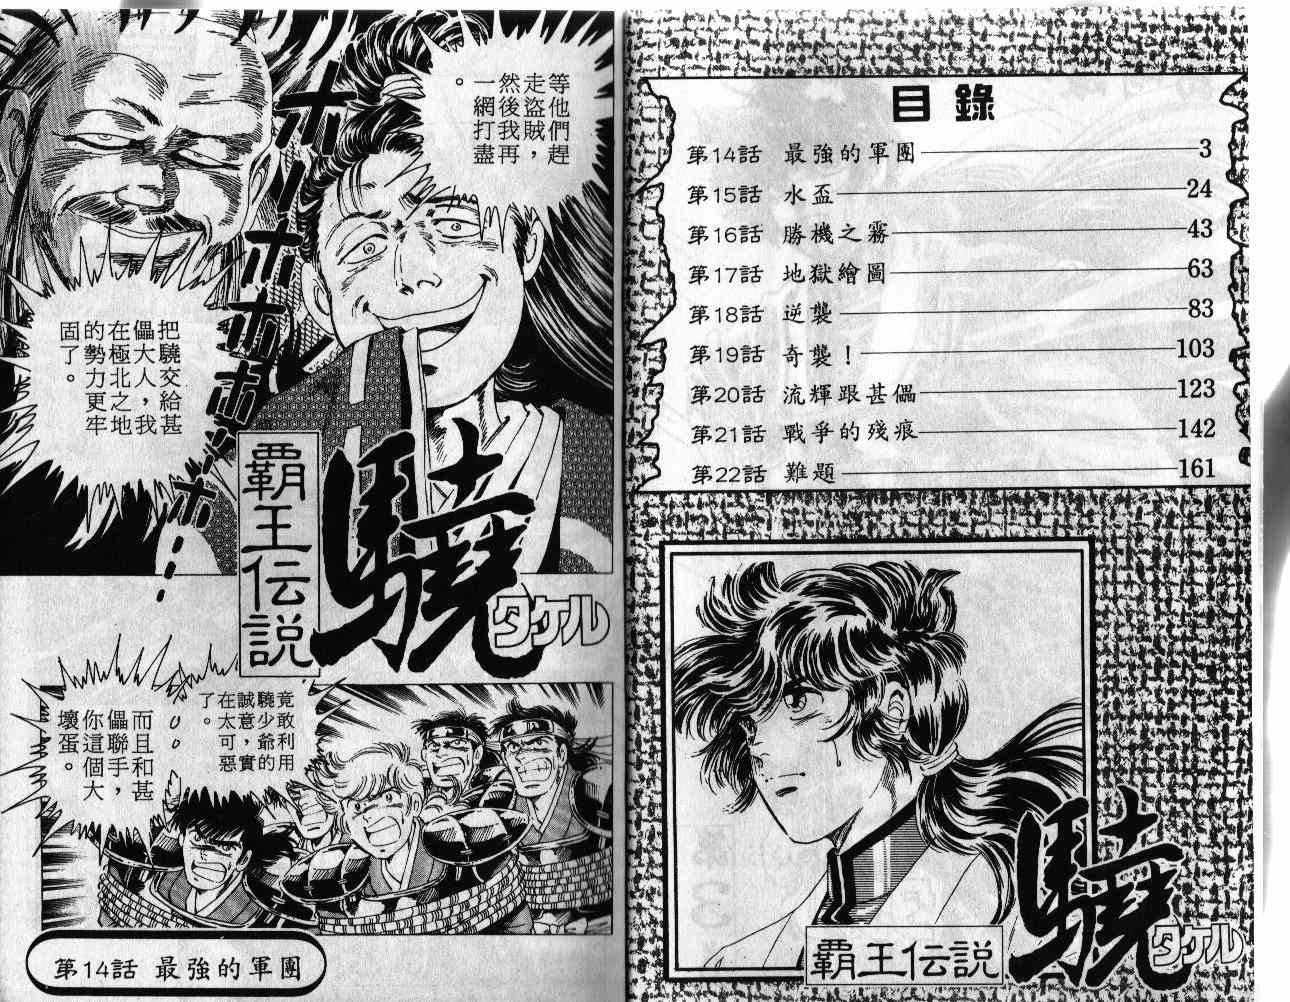 目錄
第14話 最強的軍團 3
第15話 水盃 24
第16話 勝機之霧 43
第17話 地獄繪圖 63
第18話 逆襲 83
第19話 奇襲！ 103
第20話 流輝跟甚儡 123
第21話 戰爭的殘痕 142
第22話 難題 161
驍
タケル
覇王伝説
等他們趕
走盜賊，
然後我再
一網打盡
。
ホホホホホホ！！ホ
把驍交給甚
儡大人，我
在極北之地
的勢力更牢
固了。
覇王伝説
驍
タケル
竟敢利用
驍少爺的
誠意，實
在太可惡
了。
而且和甚
儡聯手，
你這個大
壞蛋。
第14話 最強的軍團